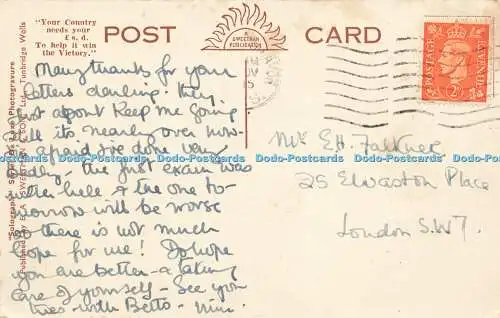 "Your Country
needs your
£ s. d.
To help it win
the Victory."
POST CARD
A SWEETMAN PUBLICATION
POSTAGE REVENUE
2D
Many thanks for your
letters darling. They
just about keep me going
till its nearly over now
afraid I've done very
badly, the first exam was
sheer hell & the one to-
morrow will be worse
so there is not much
hope for me! Do hope
you are better - & taking
care of yourself - See you
Tues - with Betts -
Mr E.H. Falkner
25 Elvaston Place
London S.W7.
"Solograph" Series de Luxe Photogravure
Published by E. A. SWEETMAN & SON, Ltd., Tunbridge Wells
Dodo-Postcards Dodo-Postcards Dodo-Postcards Dodo-Postcards Dodo-Postcards Dodo-Postcards